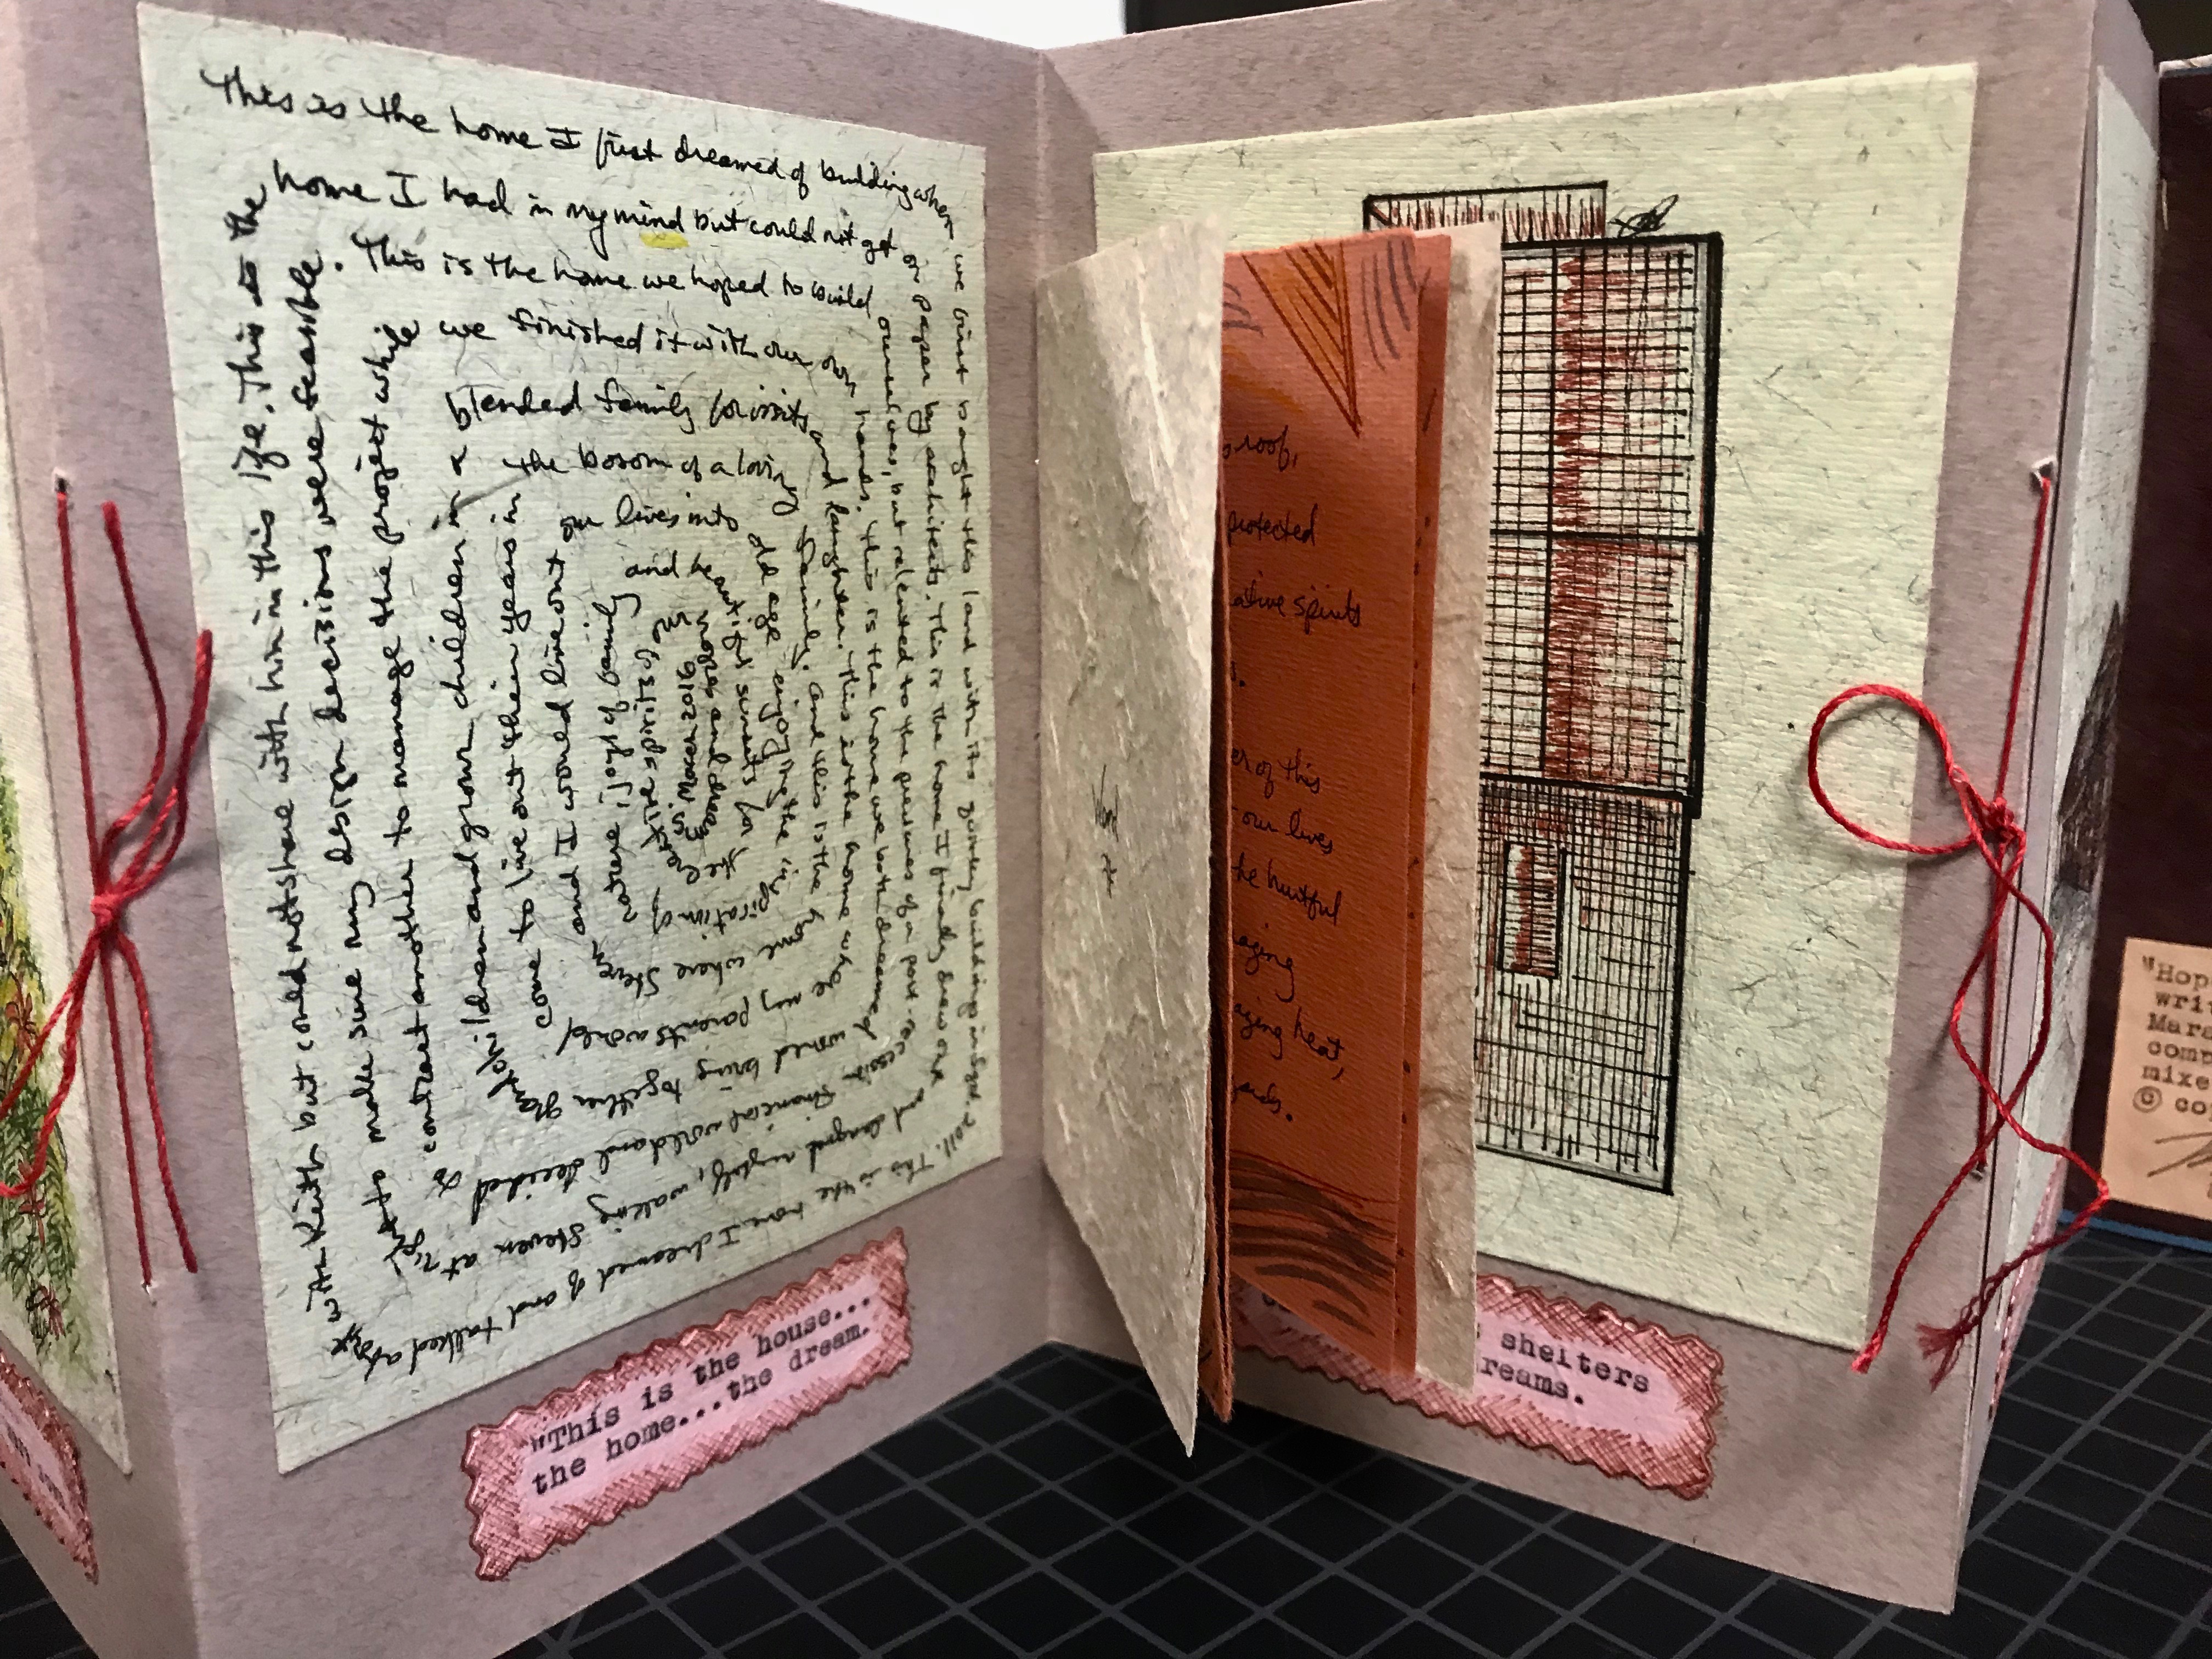 This is the home I first dreamed of building when
we first bought this land with its quirky buildings in Sept. 2011. This is the
home I dreamed of and talked
with Keith but could not share with him in this life. This is the
home I had in my mind but could not get
on paper by architects. This is the home I finally drew one
and longest night, waking Steven at
to make sure my design decisions were feasible.
This is the home we hoped to build
ourselves, but relented to the pressures of a post-recession
financial world and decided to
contract another to manage the project while
we finished it with our own
hands. This is the home we both dreamed
would bring together
grandchildren and grown children in a
blended family for visits
and laughter. This is the home where
my parents would
come to live out their years in
the bosom of a loving
family. And this is the home where Steven
and I would live out
our lives into
old age enjoying the inspiration of
nature, joys of family
and beautiful sunsets for the
"This is the house...
the home...the dream.
roof,
protected
ative spirits
s.
er of this
our lives
the hurtful
aging
aging heat,
shelters
reams.
"Hop
writ
Mara
comp
mixe
© co